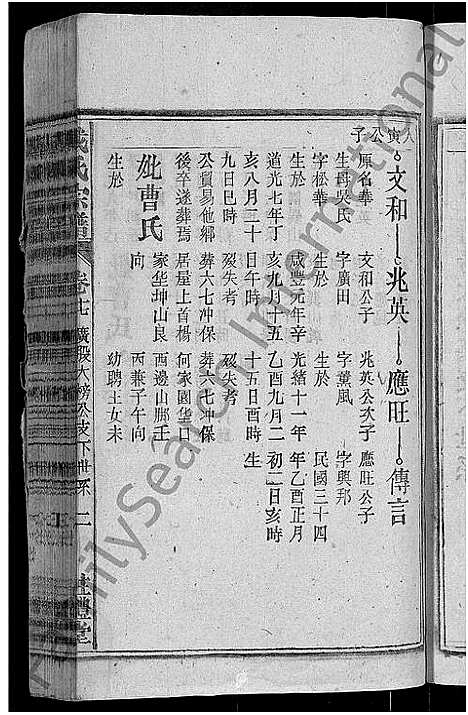 人寅公子
文和 兆英 應旺 傳言
原名華英 文和公子 兆英公次子 應旺公子
生母吳氏 字廣田 字薰風 字興邦
字松華 生於 生於 民國三十四
生於 咸豐元年辛 光緒十一年 年乙酉正月
道光七年丁 亥九月十五 乙酉九月二 初二日亥時
亥八月三十 日午時 十五日酉時 生
九日巳時 歿失考 歿失考
公貿易他鄉 葬六七冲保 葬六七冲保
後卒遂葬焉 居屋上首楊 何家園華日
妣曹氏 家华坤山艮 酉邊山郿壬
向 丙兼子午向
生於 幼聘王女未
氏宗譜
卷七 廣股大榜公支下世系 二
禮堂
FamilySearch International